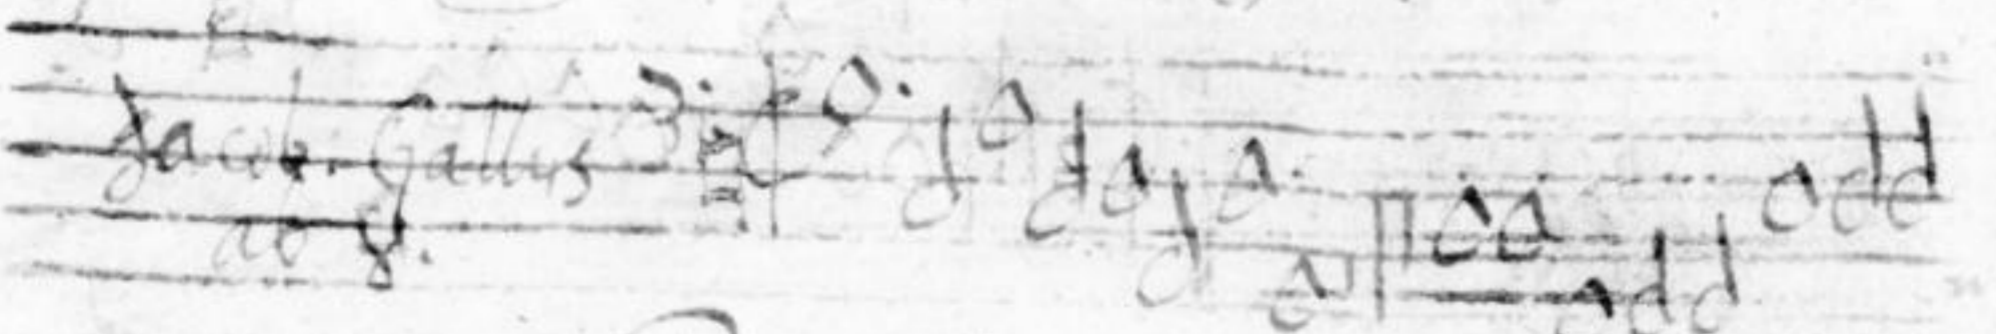 Jacob. Gallus
ab 8.